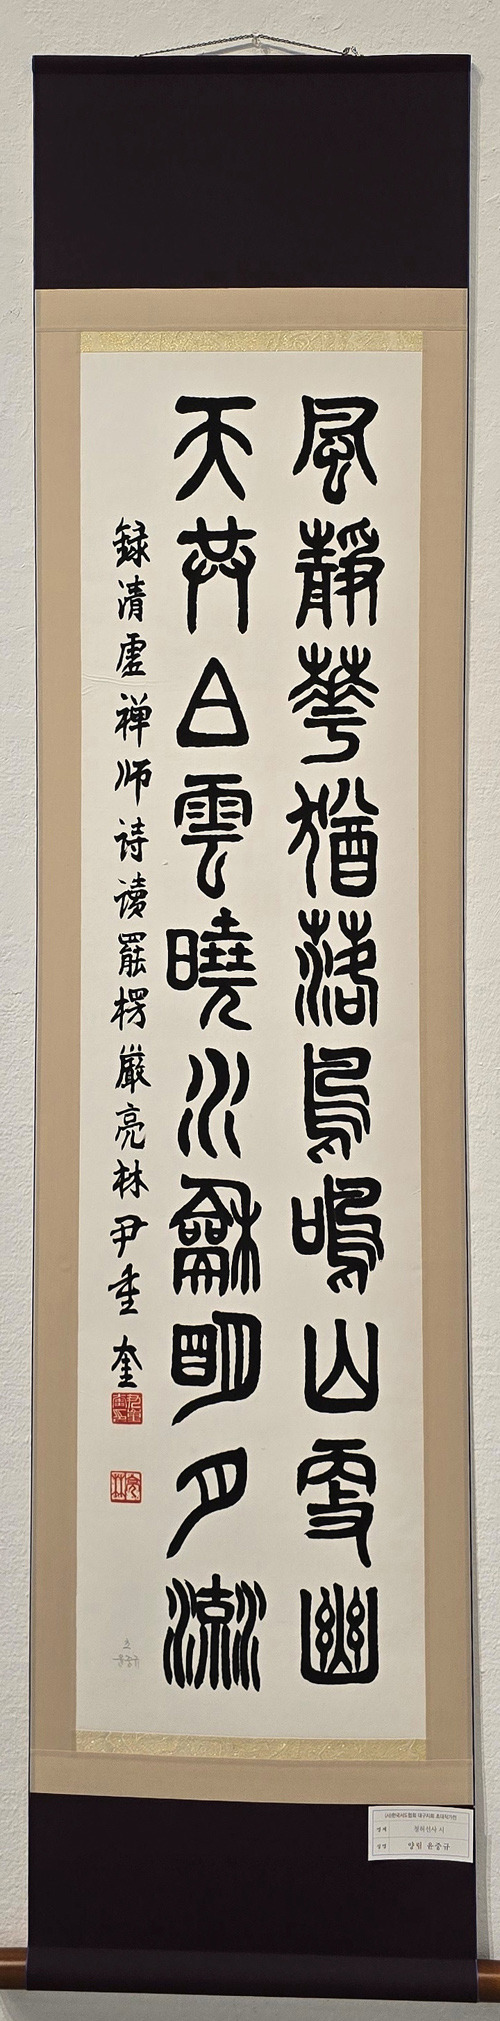 風靜華猶落鳥鳴山更幽
天共白雲曉水龢明月流
録清虛禅师诗讀罷楞嚴亮林尹重奎
亮林
(사)한국서도협회 대구지회 초대작가전
명제 청허선사 시
성명 양림 윤중규